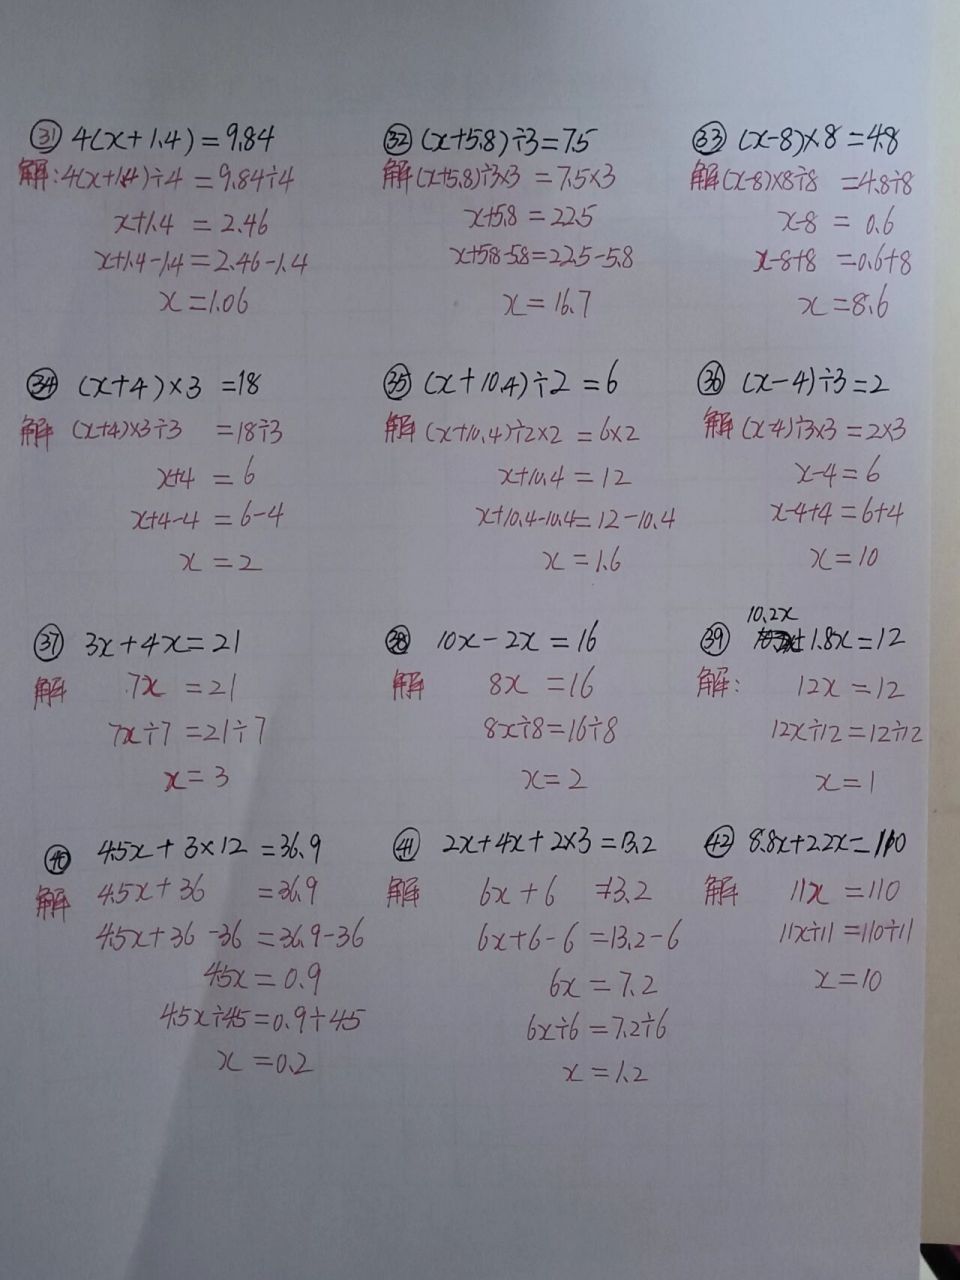 ㉛ 4(x+1.4)=9.84
解:4(x+1.4)÷4=9.84÷4
x+1.4=2.46
x+1.4-1.4=2.46-1.4
x=1.06
㉜ (x+5.8)÷3=7.5
解(x+5.8)÷3×3=7.5×3
x+5.8=22.5
x+5.8-5.8=22.5-5.8
x=16.7
㉝ (x-8)×8=4.8
解(x-8)×8÷8=4.8÷8
x-8=0.6
x-8+8=0.6+8
x=8.6
㉞ (x+4)×3=18
解 (x+4)×3÷3=18÷3
x+4=6
x+4-4=6-4
x=2
㉟ (x+10.4)÷2=6
解(x+10.4)÷2×2=6×2
x+10.4=12
x+10.4-10.4=12-10.4
x=1.6
㊱ (x-4)÷3=2
解(x-4)÷3×3=2×3
x-4=6
x-4+4=6+4
x=10
㊲ 3x+4x=21
解 7x=21
7x÷7=21÷7
x=3
㊳ 10x-2x=16
解 8x=16
8x÷8=16÷8
x=2
10.2x
㊴ +1.8x=12
解: 12x=12
12x÷12=12÷12
x=1
㊵ 4.5x+3×12=36.9
解 4.5x+36=36.9
4.5x+36-36=36.9-36
4.5x=0.9
4.5x÷4.5=0.9÷4.5
x=0.2
㊶ 2x+4x+2×3=13.2
解 6x+6=13.2
6x+6-6=13.2-6
6x=7.2
6x÷6=7.2÷6
x=1.2
㊷ 8.8x+2.2x=110
解 11x=110
11x÷11=110÷11
x=10